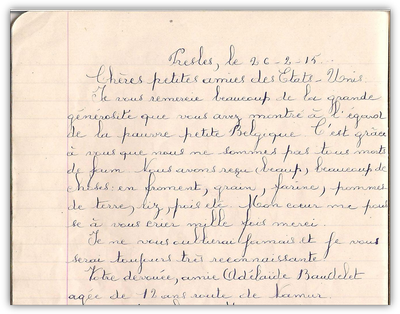 Presles, le 26-2-15.
Chères petites amies des Etats-Unis.
Je vous remercie beaucoup de la grande
générosité que vous avez montré à l'égard
de la pauvre petite Belgique. C'est grâce
à vous que nous ne sommes pas tous morts
de faim. Nous avons reçu (beaup) beaucoup de
choses: en froment, grain, farine, pommes
de terre, riz, puis etc. Mon cœur me pous
se à vous crier mille fois merci.
Je ne vous oublierai jamais et je vous
serai toujours très reconnaissante
Votre dévouée, amie Adélaïde Baudelet
agée de 12 ans route de Namur.